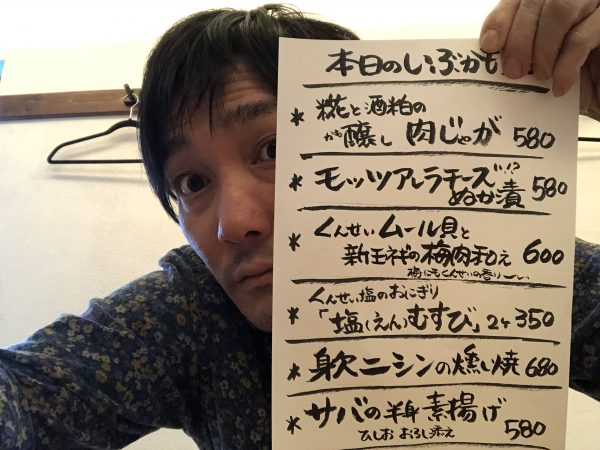 本日のいぶかも
* 糀と酒粕の
かも醸し 肉じゃが 580
* モッツアレラチーズ
ぬか漬 580
* くんせいムール貝と
新玉ネギの梅肉和え 600
梅にもくんせいの香り
くんせい塩のおにぎり
* 「塩(えん)むすび」2ヶ 350
* 身欠ニシンの燻し焼 680
* サバの半身素揚げ
ひしおおろし添え 580